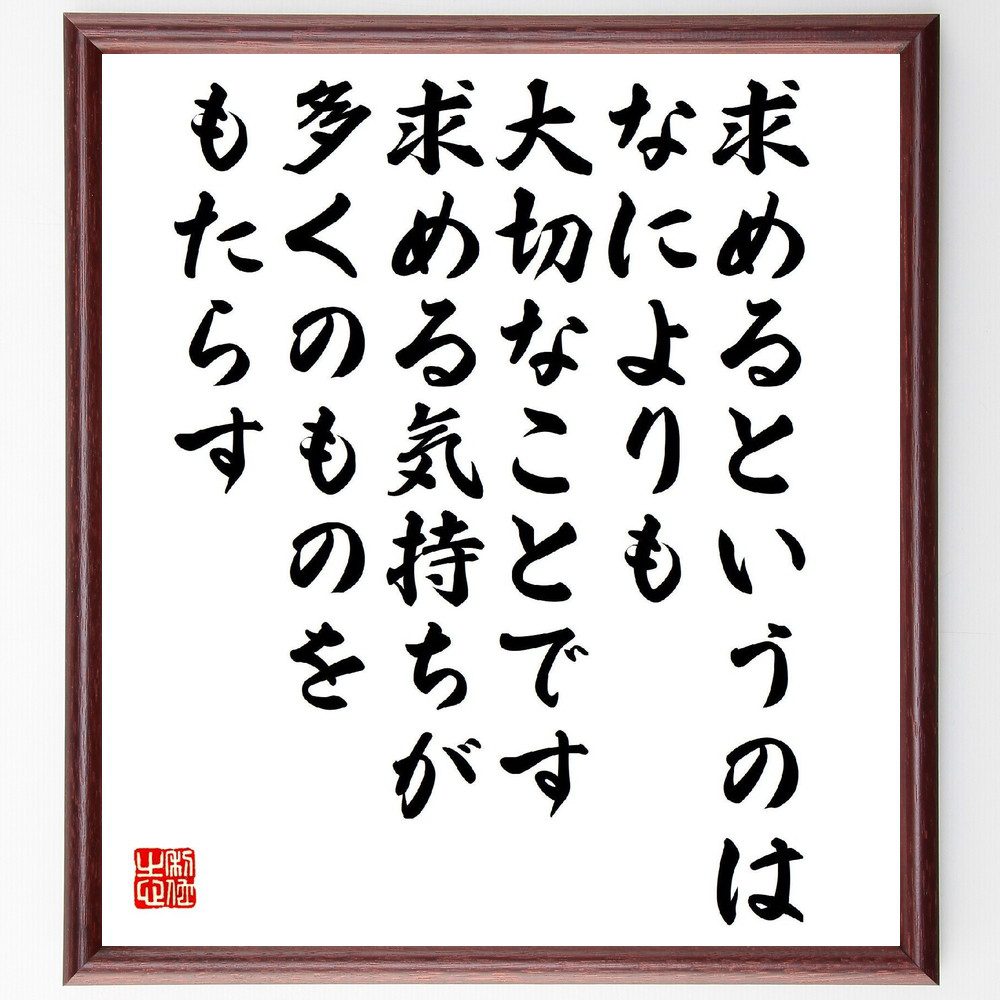 求めるというのは
なによりも
大切なことです
求める気持ちが
多くのものを
もたらす